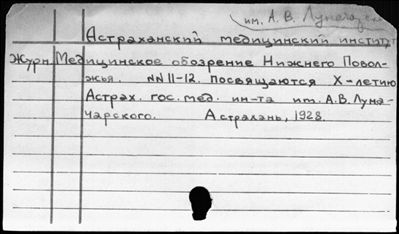 им. А. В. Луначарск
Астраханский медицинский институт
Журн. Медицинское обозрение Нижнего Повол-
жья. №№ 11-12. посвящаются X-летию
Астрах. гос. мед. ин-та им. А.В. Луна-
чарского. Астрахань, 1928.